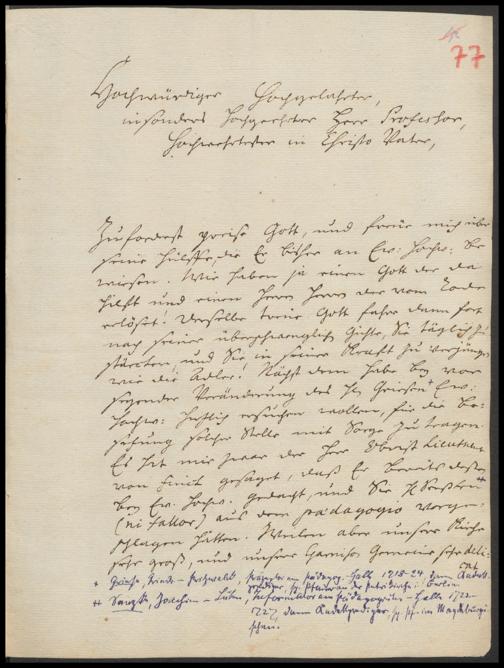 77
Hochwürdiger Hochgelahrter,
insonders Hochgeehrter Herr Professor,
Hochwehrtester in Christo Vater,
Zuforderst preise Gott, und freue mich über
seine Hülffe, die Er bisher an Ew: Hochw: be
wiesen. Wir haben ja einen Gott der da
hilft und einen Herrn Herrn der vom Tode
erlöset! Derselbe treue Gott fahre dann fort
nach seiner überschwenglich Güthe, Sie täglich zu
stärcken und Sie in seiner Krafft zu verjüngen
wie die Adler! Nächst dem habe bey vor
seyender Veränderung des H. Griesen + Ew:
Hochw: hertzlich ersuchen wollen, für die Be-
setzung solcher Stelle mit Sorge zu tragen.
Es hat mir zwar der Herr Obrist Lieutnant
von Finck gesaget, daß Er bereits desw
bey Ew. Hochw. gedacht, und Sie H
(ni fallor) aus dem paedagogio vorge-
schlagen hätten. Weilen aber unsere Kirche
sehr groß, und unsere Garnison Gemeine sehr deli-
cat
+ Friedr. Präzeptor am Pädagog. Halle 1718-24, dann Kadett.
prediger, Berlin
++ Joachim Lübeu, Informator am Pädagogium - Halle 1722-
1727, dann Kadettprediger, im Magdeburgi
schen.